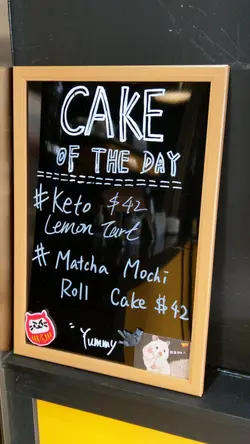 CAKE
OF THE DAY
#Keto $42
Lemon Tart
#Matcha Mochi
Roll Cake $42
"Yummy~